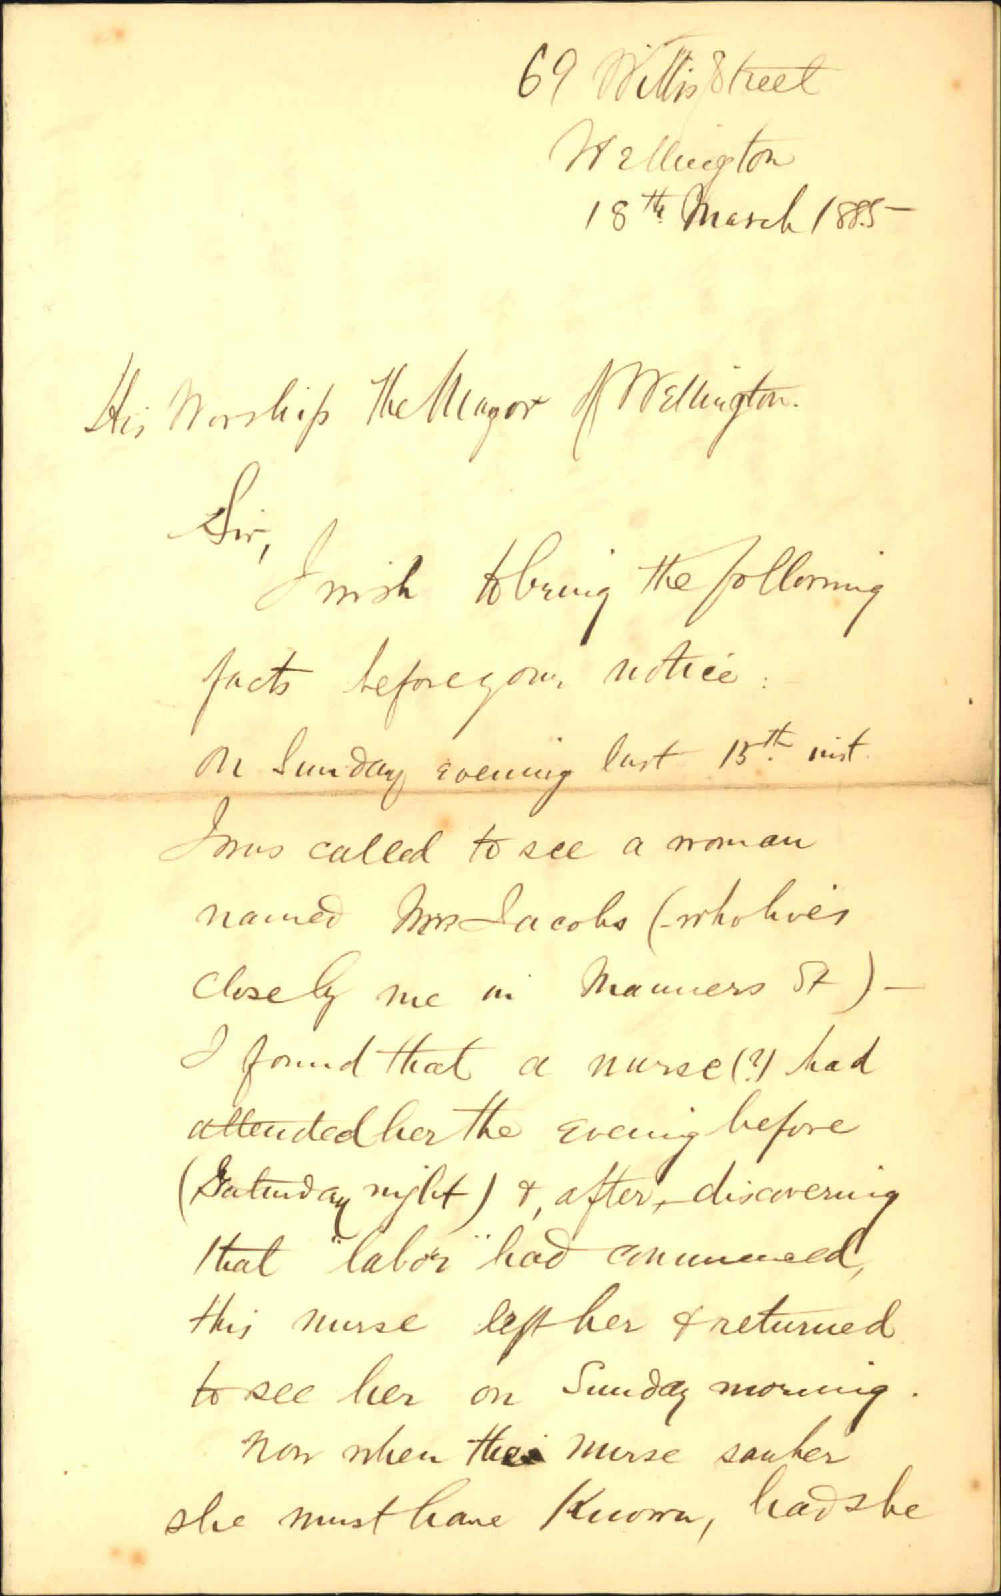 69 Willis Street
Wellington
18th March 1885
His Worship the Mayor of Wellington.
Sir,
I wish to bring the following
facts before your notice :
On Sunday evening last 15th inst.
I was called to see a woman
named Mrs Jacobs (who lives
closely me in Manners St) -
I found that a nurse (?) had
attended her the evening before
(Saturday night) &, after, discovering
that "labor" had commenced,
this nurse left her & returned
to see her on Sunday morning.
Now when this nurse saw her
she must have known, had she